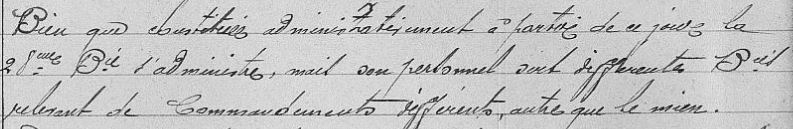 Bien que constituée administrativement à partir de ce jour la
28ème Bie s'administre, mais son personnel sert différentes Bies
relevant de Commandements différents, autre que le mien.